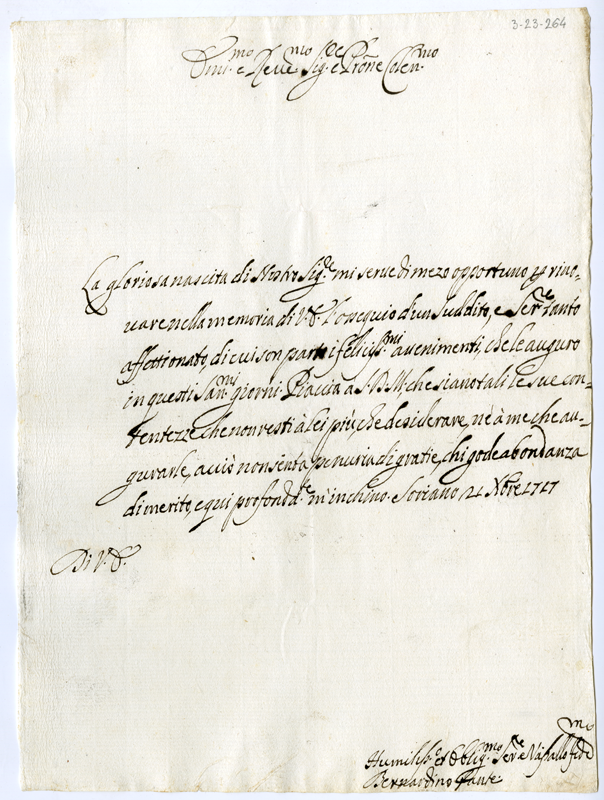 3-23-264
Emi.mo e Reve.mo Sig.re e Prone Colen.mo
La gloriosa nascita di Nostro Sig.re mi serve di mezo opportuno p rino-
vare nella memoria di V.E. l'ossequio d'un Suddito, e Ser.re tanto
affettionato, di cui son parto i felicis.mi avenimenti, che le auguro
in questi San.mi giorni. Piaccia a S.D.M. che siano tali le sue con-
tentezze che non resti à lei più che desiderare, nè à me che au-
gurarle, acciò non senta penuria di gratie, chi gode abondanza
di merito, e qui profond.te m'inchino. Soriano 21 Xbre 1717
Di V.E.
Humilis.o et Oblig.mo Ser.re e Vassallo fid.mo
Bernardino Fante